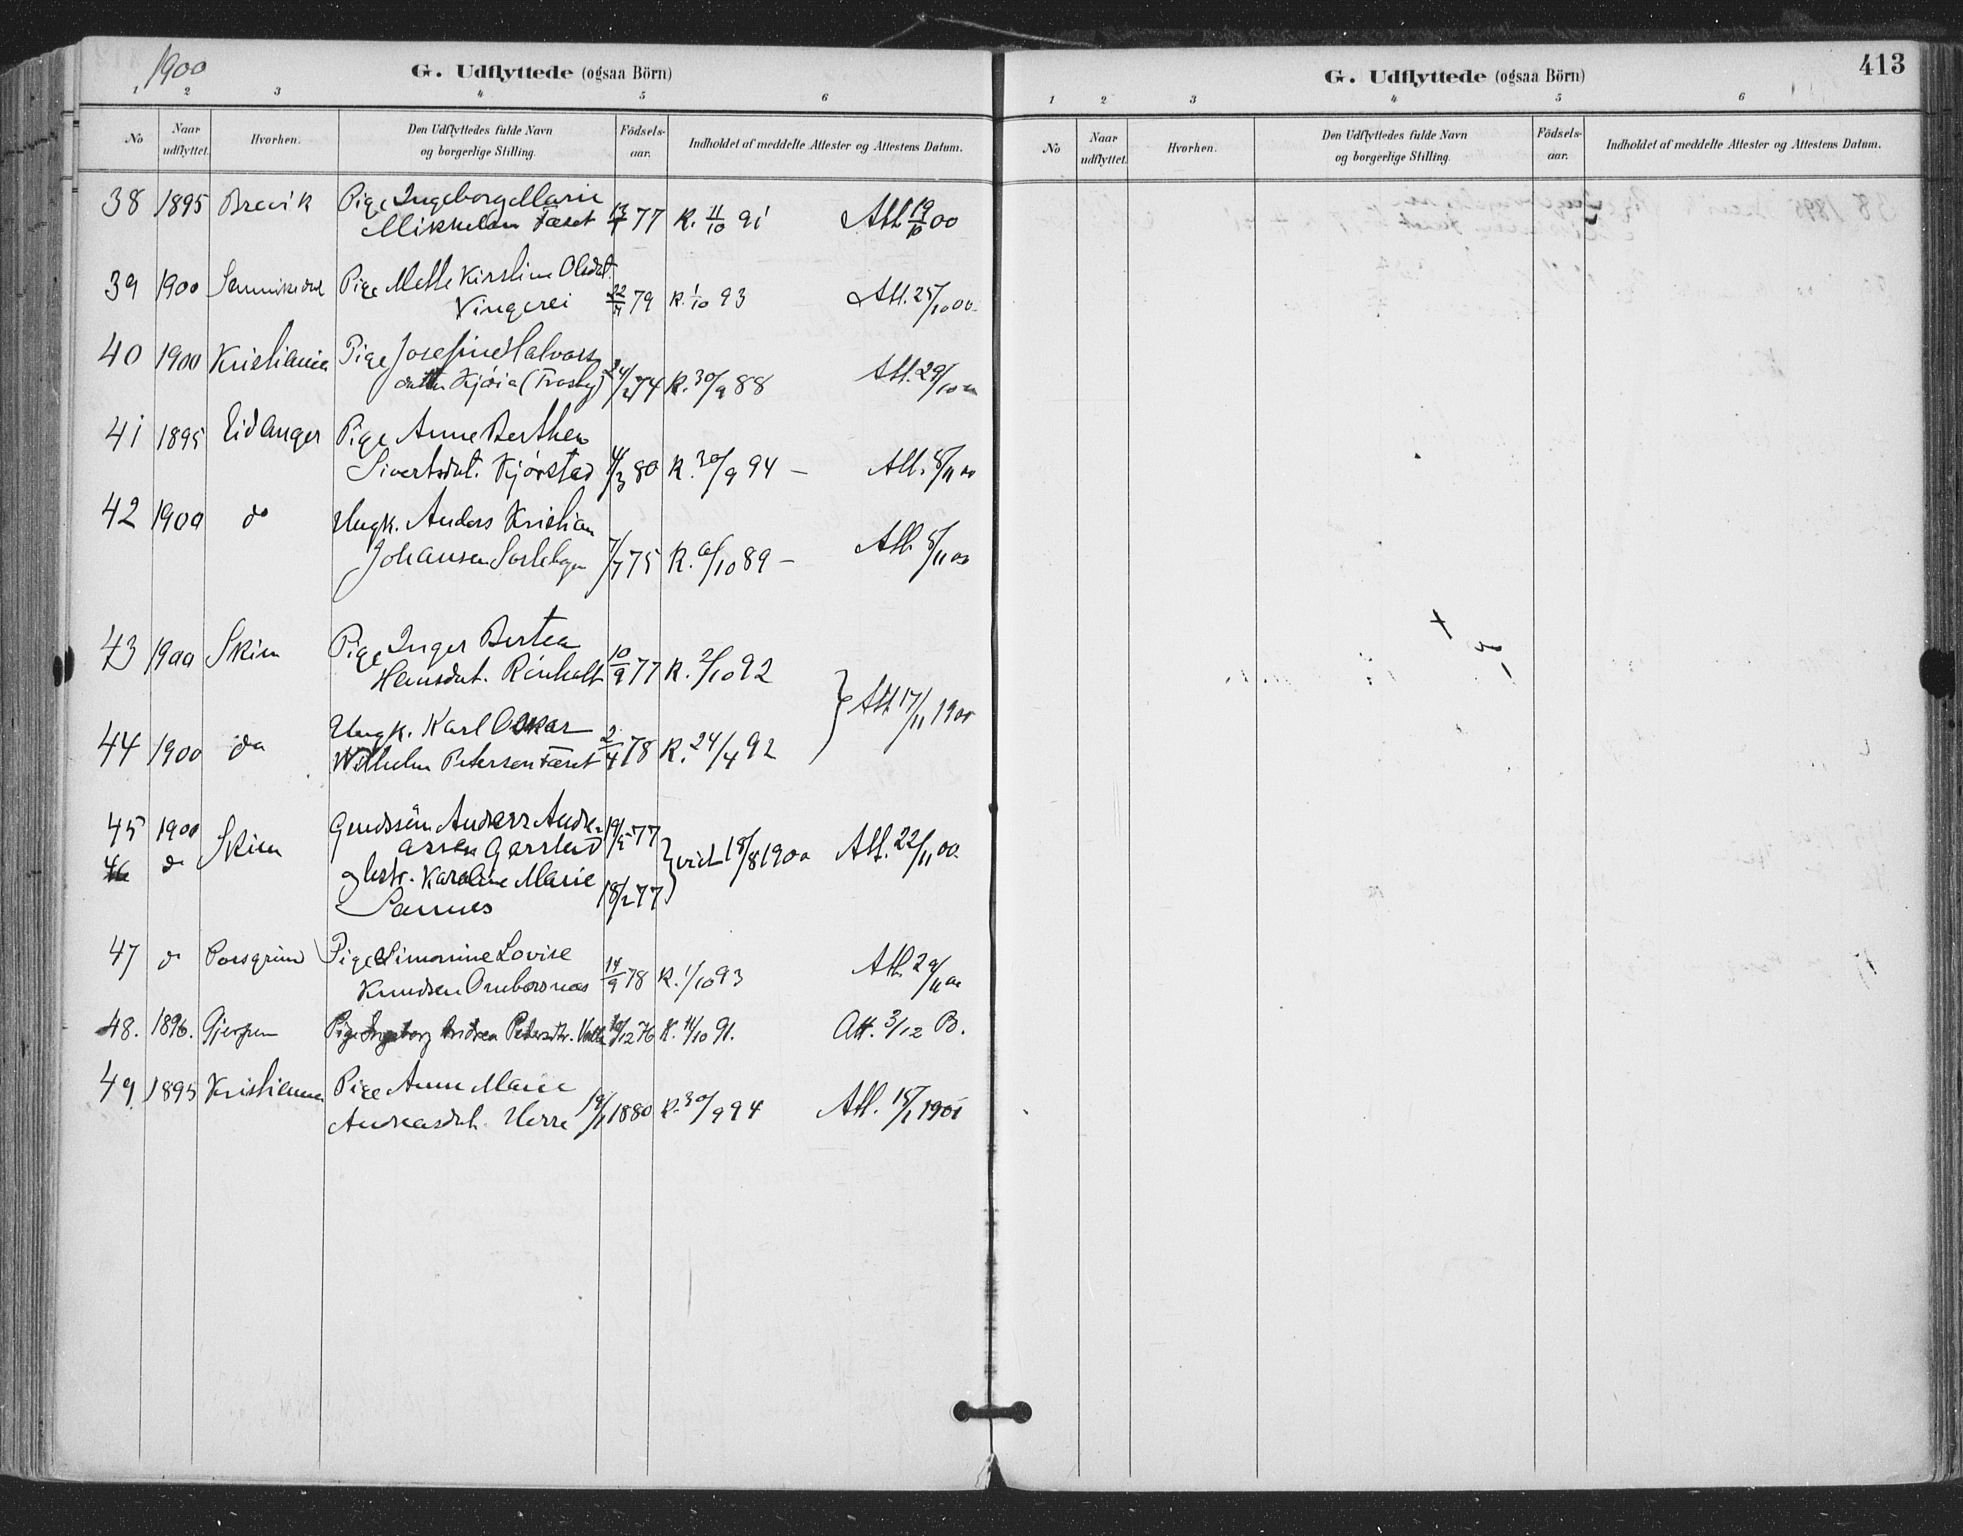 1900
G. Udflyttede (ogsaa Börn)
1 2 3 4 5 6
No
Naar udflyttet.
Hvorhen.
Den Udflyttedes fulde Navn og borgerlige Stilling.
Födsels-aar.
Indholdet af meddelte Attester og Attestens Datum.
38 1895 Brevik Pige Ingeborg Marie
Mikkelsen Fæset 77 K. 11/10 91 Att 19/10 00
39 1900 Sannikedal Pige Mette Kirstine Olsdat.
Vingerei 79 K. 1/10 93 Att. 25/10 00.
40 1900 Kristiania Pige Josefine Halvors
datter Kjøia (Trosby) 24/2 74 K. 30/9 88 Att. 29/10 00
41 1895 Eidanger Pige Anne Berthea
Sivertsdat. Kjørstad 4/3 80 K. 30/9 94 — Att. 8/11 00
42 1900 do Ungk. Anders Kristian
Johansen 7/7 75 K. 6/10 89 — Att 8/11 00
43 1900 Skien Pige Inger Bertea
Hansdat. Rønholt 10/9 77 K. 2/10 92
Att 17/11 1900
44 1900 do Ungk. Karl Oskar
Wilhelm Petersen Fæset 2/4 78 K. 24/4 92
45 1900 Skien Anders Andre-
assen Garstad 19/5 77
46 do og hstr. Karoline Marie
Sannes 18/2 77 viet 18/8 1900 Att. 22/11 00.
47 do Porsgrund Pige Simonine Lovise
Knudsen Omborsnæs 14/9 78 K. 1/10 93 Att. 29/11 00
48. 1896. Gjerpen Pige Ingeborg Andrea Petersdtr. Valle /12 76 K. 11/10 91. Att. 3/12 B.
49. 1895 Kristiania Pige Anne Marie
Andreasdat. Herre 19/1 1880 K. 30/9 94 Att. 15/1 1901
413
G. Udflyttede (ogsaa Börn)
1 2 3 4 5 6
No
Naar udflyttet.
Hvorhen.
Den Udflyttedes fulde Navn og borgerlige Stilling.
Födsels-aar.
Indholdet af meddelte Attester og Attestens Datum.